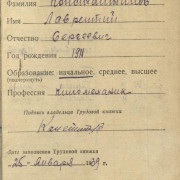 Фамилия Константинов
Имя Лаврентий
Отчество Сергеевич
Год рождения 1911
Образование: начальное, среднее, высшее
(подчеркнуть)
Профессия Киномеханик
Подпись владельца Трудовой книжки
Дата заполнения Трудовой книжки
25 Января 1939 г.